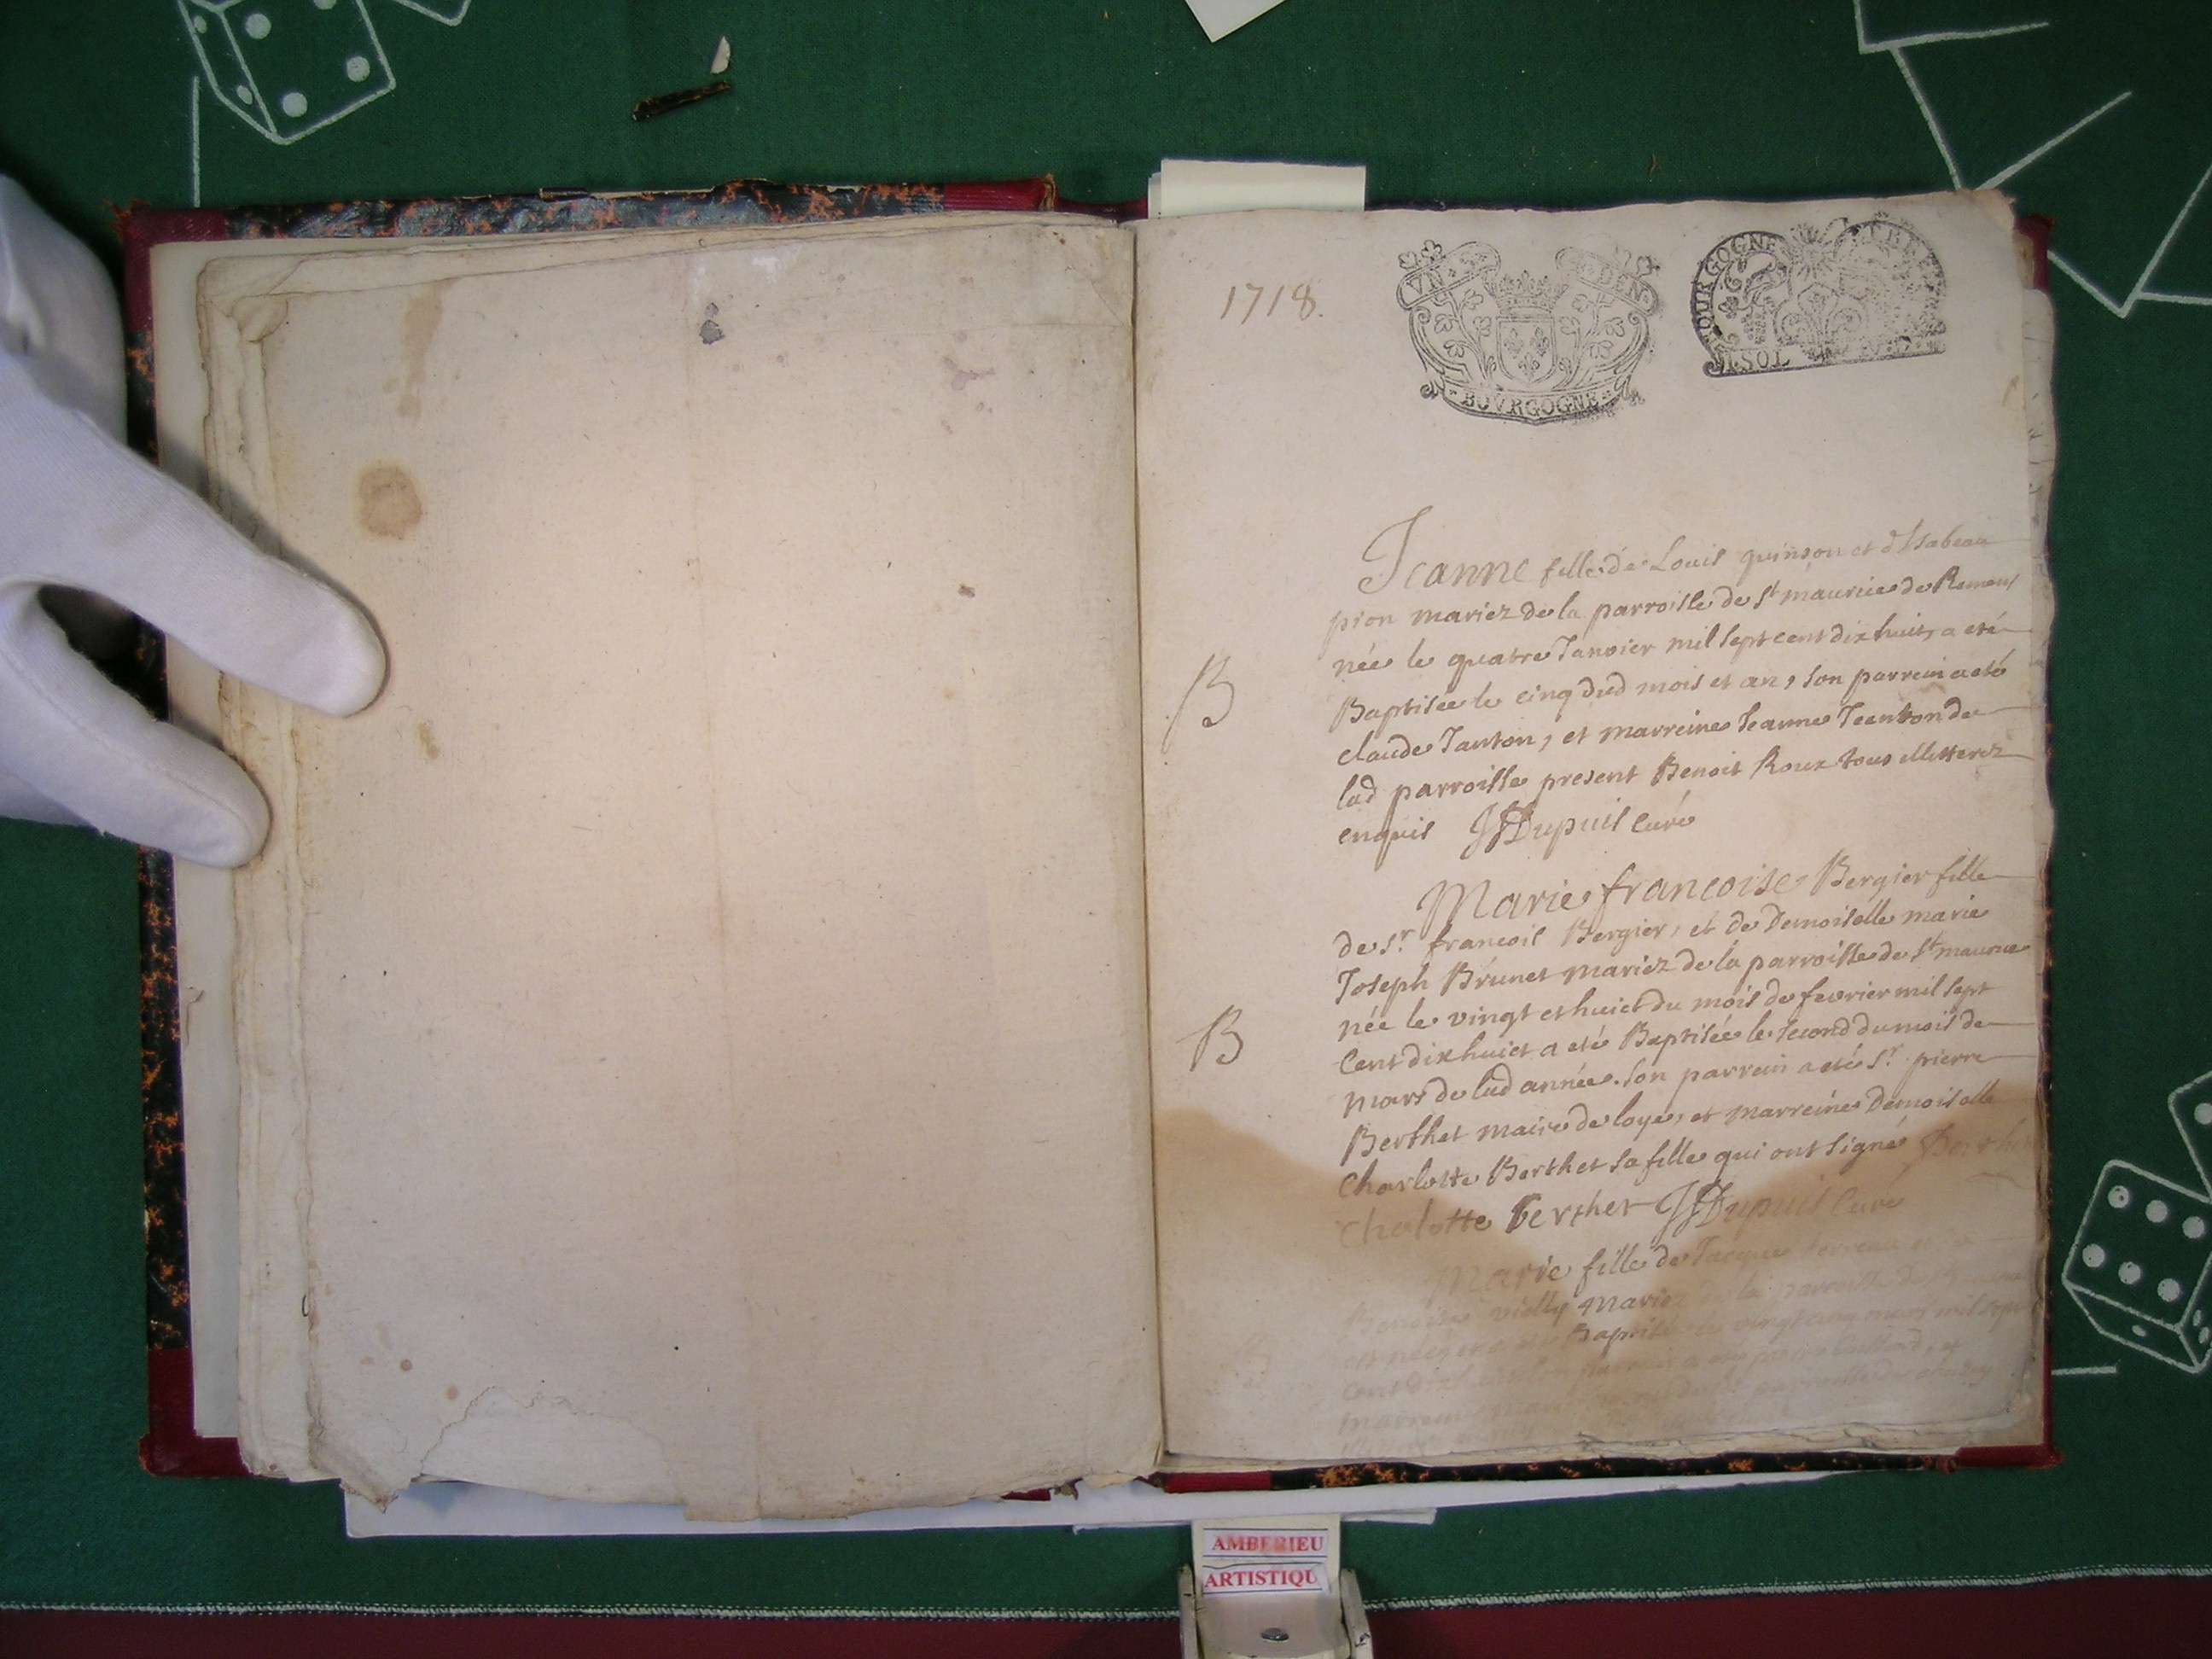 1718.
VN DEN
BOVRGOGNE
BOURGOGNE
SOL
Jeanne fille de Louis quinson et d'Isabeau
pion mariez de la parroisse de st maurice de Remens
née le quatre Janvier mil sept cent dix huit, a eté
B
Baptisée le cinq dud mois et an, son parrein a eté
claude Janton, et marreine Jeanne Jeenton de
lad parroisse present Benoit Roux tous illitterez
enquis JFDupuis Curé
Marie francoise Bergier fille
de sr. francois Bergier, et de Demoiselle marie
Joseph Brunet mariez de la parroisse de st maurice
née le vingt et huict du mois de fevrier mil sept
B
Cent dix huict a eté Baptisée le second du mois de
mars de lad année. son parrein a eté sr. pierre
Berthet maire de loye, et marreine Demoiselle
Charlotte Berthet sa fille qui ont signé Berthet
Chalotte berthet JFDupuis Curé
Marie fille de Jacque
vielly mariez de la parroisse de
Baptisée le vingt cinq mars mil sept
Cent dix
AMBERIEU
ARTISTIQU